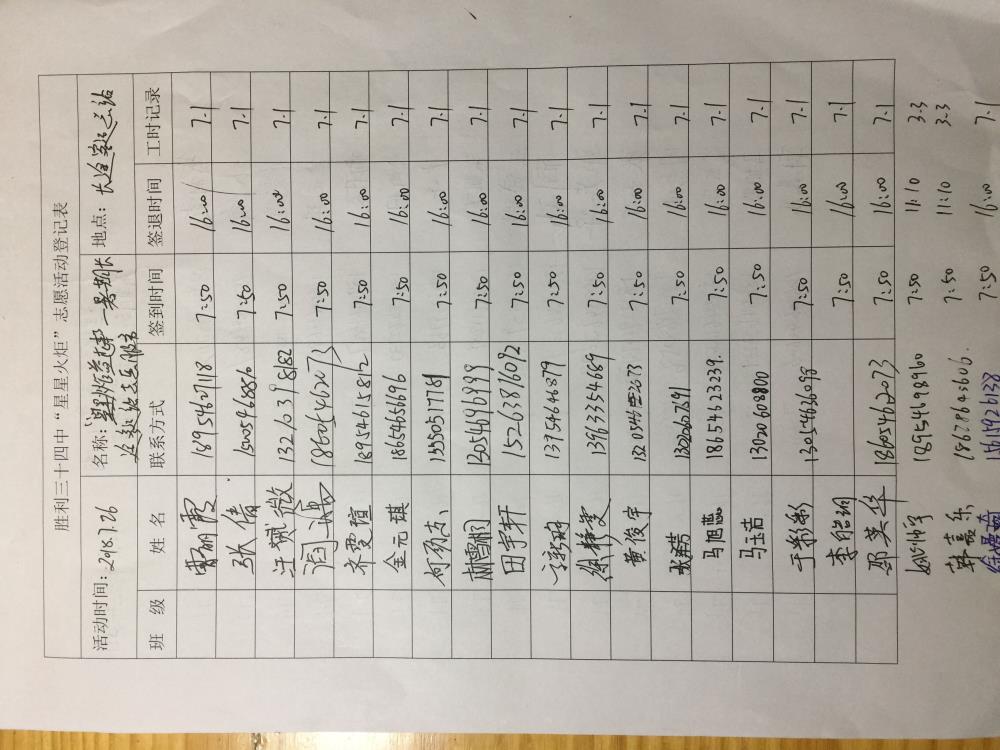 胜利三十四中“星星火炬”志愿活动登记表
活动时间：2018.7.26 名称： 地点：长途客运总站
班 级 姓 名 联系方式 签到时间 签退时间 工时记录
曹丽霞 18954627118 7:50 16:00 7.1
张倩 15005468886 7:50 16:00 7.1
汪薇 13276398182 7:50 16:00 7.1
闫 18605462073 7:50 16:00 7.1
齐雯暄 18954615812 7:50 16:00 7.1
金元琪 18654656696 7:50 16:00 7.1
柯 15550517781 7:50 16:00 7.1
林雪桐 13054696999 7:50 16:00 7.1
田宇轩 15263876092 7:50 16:00 7.1
13954646879 7:50 16:00 7.1
徐梓雯 13963354689 7:50 16:00 7.1
黄俊宇 7:50 16:00 7.1
7:50 16:00 7.1
马旭蕊 18654623239. 7:50 16:00 7.1
马玉洁 13020608800 7:50 16:00 7.1
于 13054636098 7:50 16:00 7.1
李 7:50 16:00 7.1
郭英华 18605462073 7:50 16:00 7.1
18954698960 7:50 11:10 3.3
韩嘉乐 18678643606. 7:50 11:10 3.3
15619926138 7:50 16:00 7.1